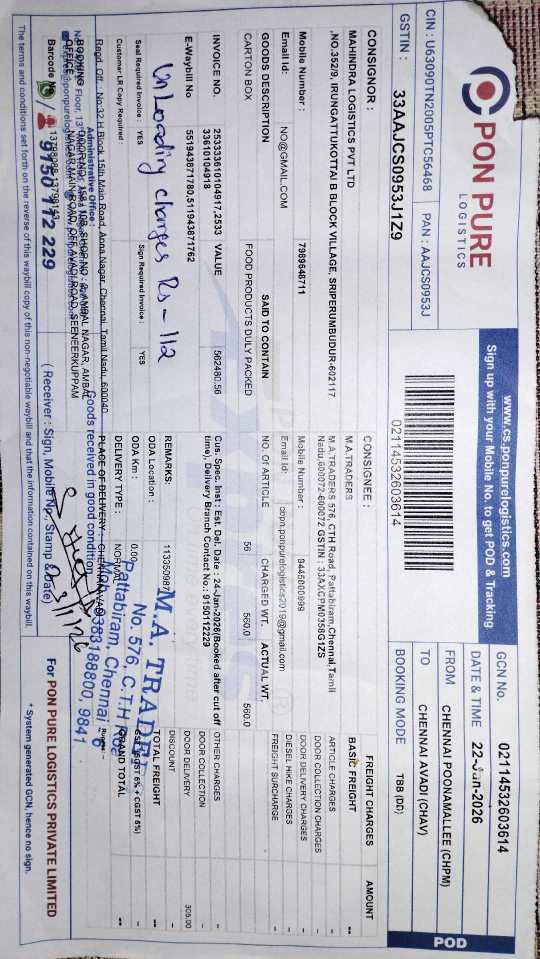 PON PURE
LOGISTICS
www.cs.ponpurelogistics.com
Sign up with your Mobile No. to get POD & Tracking
CIN : U63090TN2005PTC56468 PAN : AAJCS0953J
GSTIN : 33AAJCS0953J1Z9
02114532603614
GCN No. 02114532603614
DATE & TIME 22-Jan-2026
FROM CHENNAI POONAMALLEE (CHPM)
TO CHENNAI AVADI (CHAV)
BOOKING MODE TBB (DC)
POD
CONSIGNOR :
MAHINDRA LOGISTICS PVT LTD
,NO.352/9, IRUNGATTUKOTTAI B BLOCK VILLAGE, SRIPERUMBUDUR-602117
Mobile Number : 7989648711
Email Id: NO@GMAIL.COM
CONSIGNEE :
M.A.TRADERS
M.A.TRADERS 576, CTH Road, Pattabiram,Chennai,Tamil
Nadu,600072-600072 GSTIN : 33AXCPM0358G1ZS
Mobile Number : 9445000999
Email Id: cbpn.ponpurelogistics2019@gmail.com
FREIGHT CHARGES AMOUNT
BASIC FREIGHT -
ARTICLE CHARGES -
DOOR COLLECTION CHARGES -
DOOR DELIVERY CHARGES -
DIESEL HIKE CHARGES -
FREIGHT SURCHARGE -
OTHER CHARGES
DOOR COLLECTION
DOOR DELIVERY 305.00
DISCOUNT
TOTAL FREIGHT --
GRAND TOTAL --
GOODS DESCRIPTION SAID TO CONTAIN NO. Of ARTICLE CHARGED WT. ACTUAL WT.
CARTON BOX FOOD PRODUCTS DULY PACKED 56 560.0 560.0
INVOICE NO. 25333610104917,2533 VALUE 562480.56
33610104918
E-Waybill No 551943871780,511943871762
Cus. Spec. Inst : Est. Del. Date : 24-Jan-2026(Booked after cut off
time), Delivery Branch Contact No.: 9150112229
UnLoading charges Rs - 112
REMARKS:
ODA Location :
ODA Km : 0.00
DELIVERY TYPE : NORMAL
PLACE OF DELIVERY :
Seal Required Invoice : YES Sign Required Invoice : YES
Customer LR Copy Required :
M.A. TRADE
No. 576, C.T.H
Pattabiram, Chennai
9383188800, 9841
Regd. Off. : No.32 H Block 15th Main Road, Anna Nagar, Chennai, Tamil Nadu, 600040
Administrative Office :
BOOKING
OFFICE
Goods received in good condition
Barcode No
9150 112 229
( Receiver : Sign, Mobile No, Stamp & Date)
For PON PURE LOGISTICS PRIVATE LIMITED
The terms and conditions set forth on the reverse of this waybill copy of this non-negotiable waybill and that the information contained on this waybill.
* System generated GCN, hence no sign.